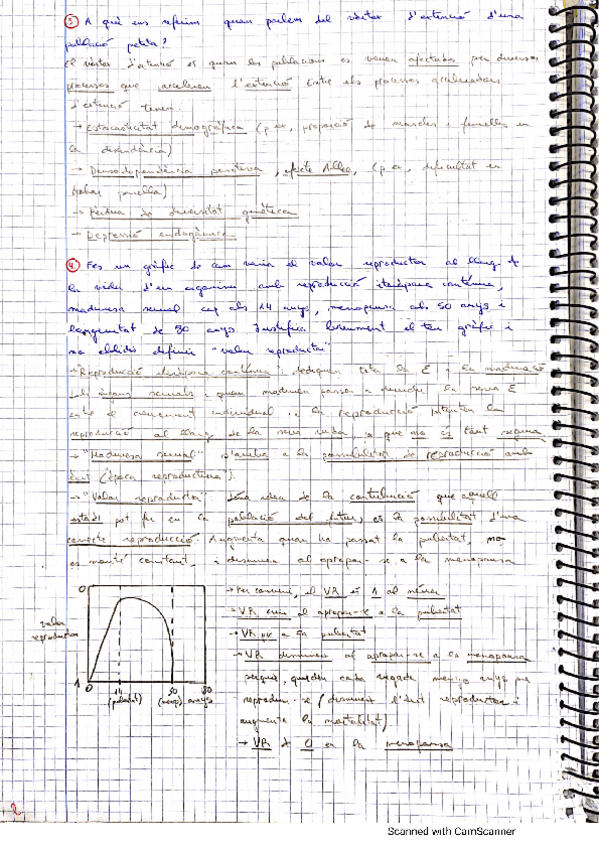 ③ A què ens referim quan parlem del vòrtex d'extinció d'una
població petita?
El vòrtex d'extinció és quan les poblacions es veuen afectades per diversos
processos que acceleren l'extinció. Entre els processos acceleradors
d'extinció tenim:
→ Estocasticitat demogràfica (p. ex, proporció de mascles i femelles en
la descendència)
→ Densodependència positiva, efecte Allee, (p. ex, dificultat en
trobar parella)
→ Pèrdua de diversitat genètica
→ Depressió endogàmica
④ Fes un gràfic de com varia el valor reproductor al llarg de
la vida d'un organisme amb reproducció iteròpara contínua,
maduresa sexual cap als 14 anys, menopausa als 50 anys i
longevitat de 80 anys. Justifica breument el teu gràfic i
no oblidis definir "valor reproductor"
→ "Reproducció iteròpara contínua": dediquen tota la E a la maduració
dels òrgans sexuals i quan maduren passen a la seva E
entre el creixement individual i la reproducció. Intenten la
reproducció al llarg de la seva vida, ja que no és tant segura
→ "Maduresa sexual": s'arriba a la possibilitat de reproducció amb
èxit (època reproductora).
→ "Valor reproductor": dóna idea de la contribució que aquell
estadi pot fer en la població del futur, és la possibilitat d'una
correcte reproducció. Augmenta quan ha passat la pubertat, no
es manté constant, i disminueix al apropar-se a la menopausa
valor
reproductor
0
1
0
14
(pubertat)
50
(menop.)
80
anys
→ Per conveni, el VR és 1 al néixer
→ VR creix al apropar-se a la pubertat
→ VR a la pubertat
→ VR disminueix al apropar-se a la menopausa
perquè, queden cada vegada menys anys per
reproduir-se (disminueix l'èxit reproductor i
augmenta la mortalitat)
→ VR 0 en la menopausa
2
Scanned with CamScanner